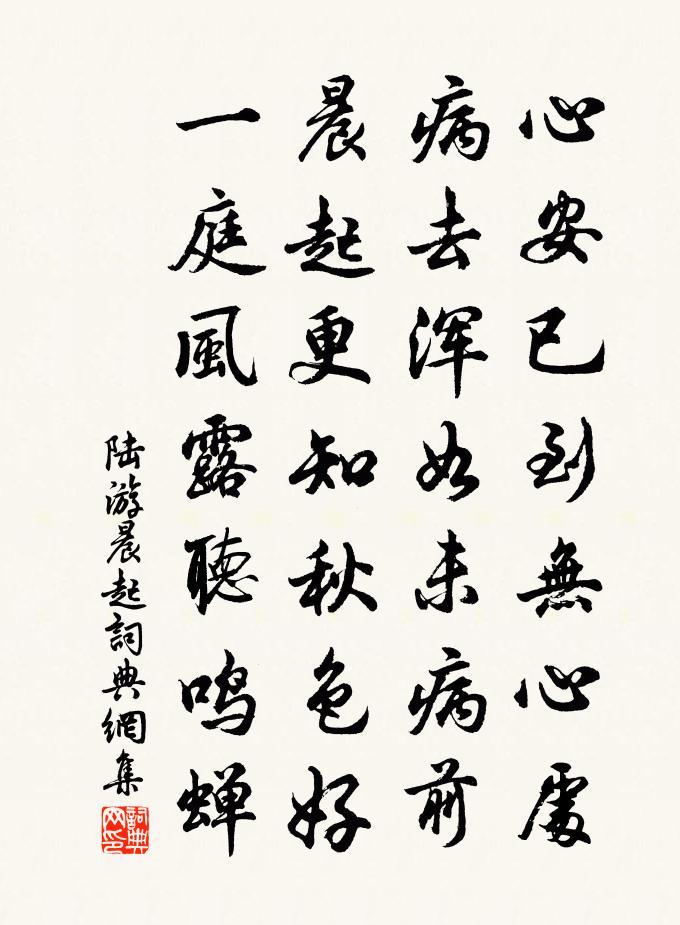 心安已到無心處
病去渾如未病前
晨起更知秋色好
一庭風露聽鳴蟬
陆游晨起詞典網集
詞典网印